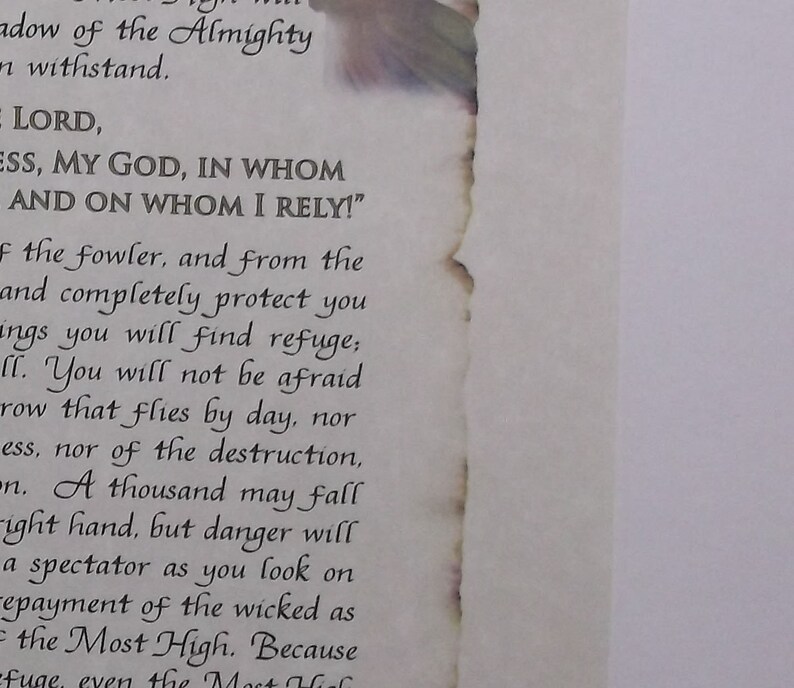 adow of the Almighty
n withstand.
LORD,
ESS, MY GOD, IN WHOM
AND ON WHOM I RELY!”
f the fowler, and from the
and completely protect you
ings you will find refuge;
ll. You will not be afraid
row that flies by day, nor
ess, nor of the destruction,
on. A thousand may fall
right hand, but danger will
a spectator as you look on
repayment of the wicked as
f the Most High. Because
efuge, even the Most High